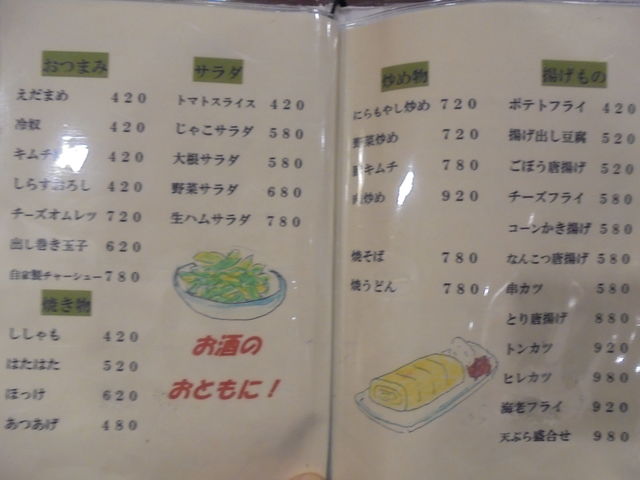 おつまみ
えだまめ 420
冷奴 420
キムチ 420
しらすおろし 420
チーズオムレツ 720
出し巻き玉子 620
自家製チャーシュー 780
焼き物
ししゃも 420
はたはた 520
ほっけ 620
あつあげ 480
サラダ
トマトスライス 420
じゃこサラダ 580
大根サラダ 580
野菜サラダ 680
生ハムサラダ 780
お酒の
おともに！
炒め物
にらもやし炒め 720
野菜炒め 720
キムチ 780
炒め 920
焼そば 780
焼うどん 780
揚げもの
ポテトフライ 420
揚げ出し豆腐 520
ごぼう唐揚げ 520
チーズフライ 580
コーンかき揚げ 580
なんこつ唐揚げ 580
串カツ 580
とり唐揚げ 880
トンカツ 920
ヒレカツ 980
海老フライ 920
天ぷら盛合せ 980